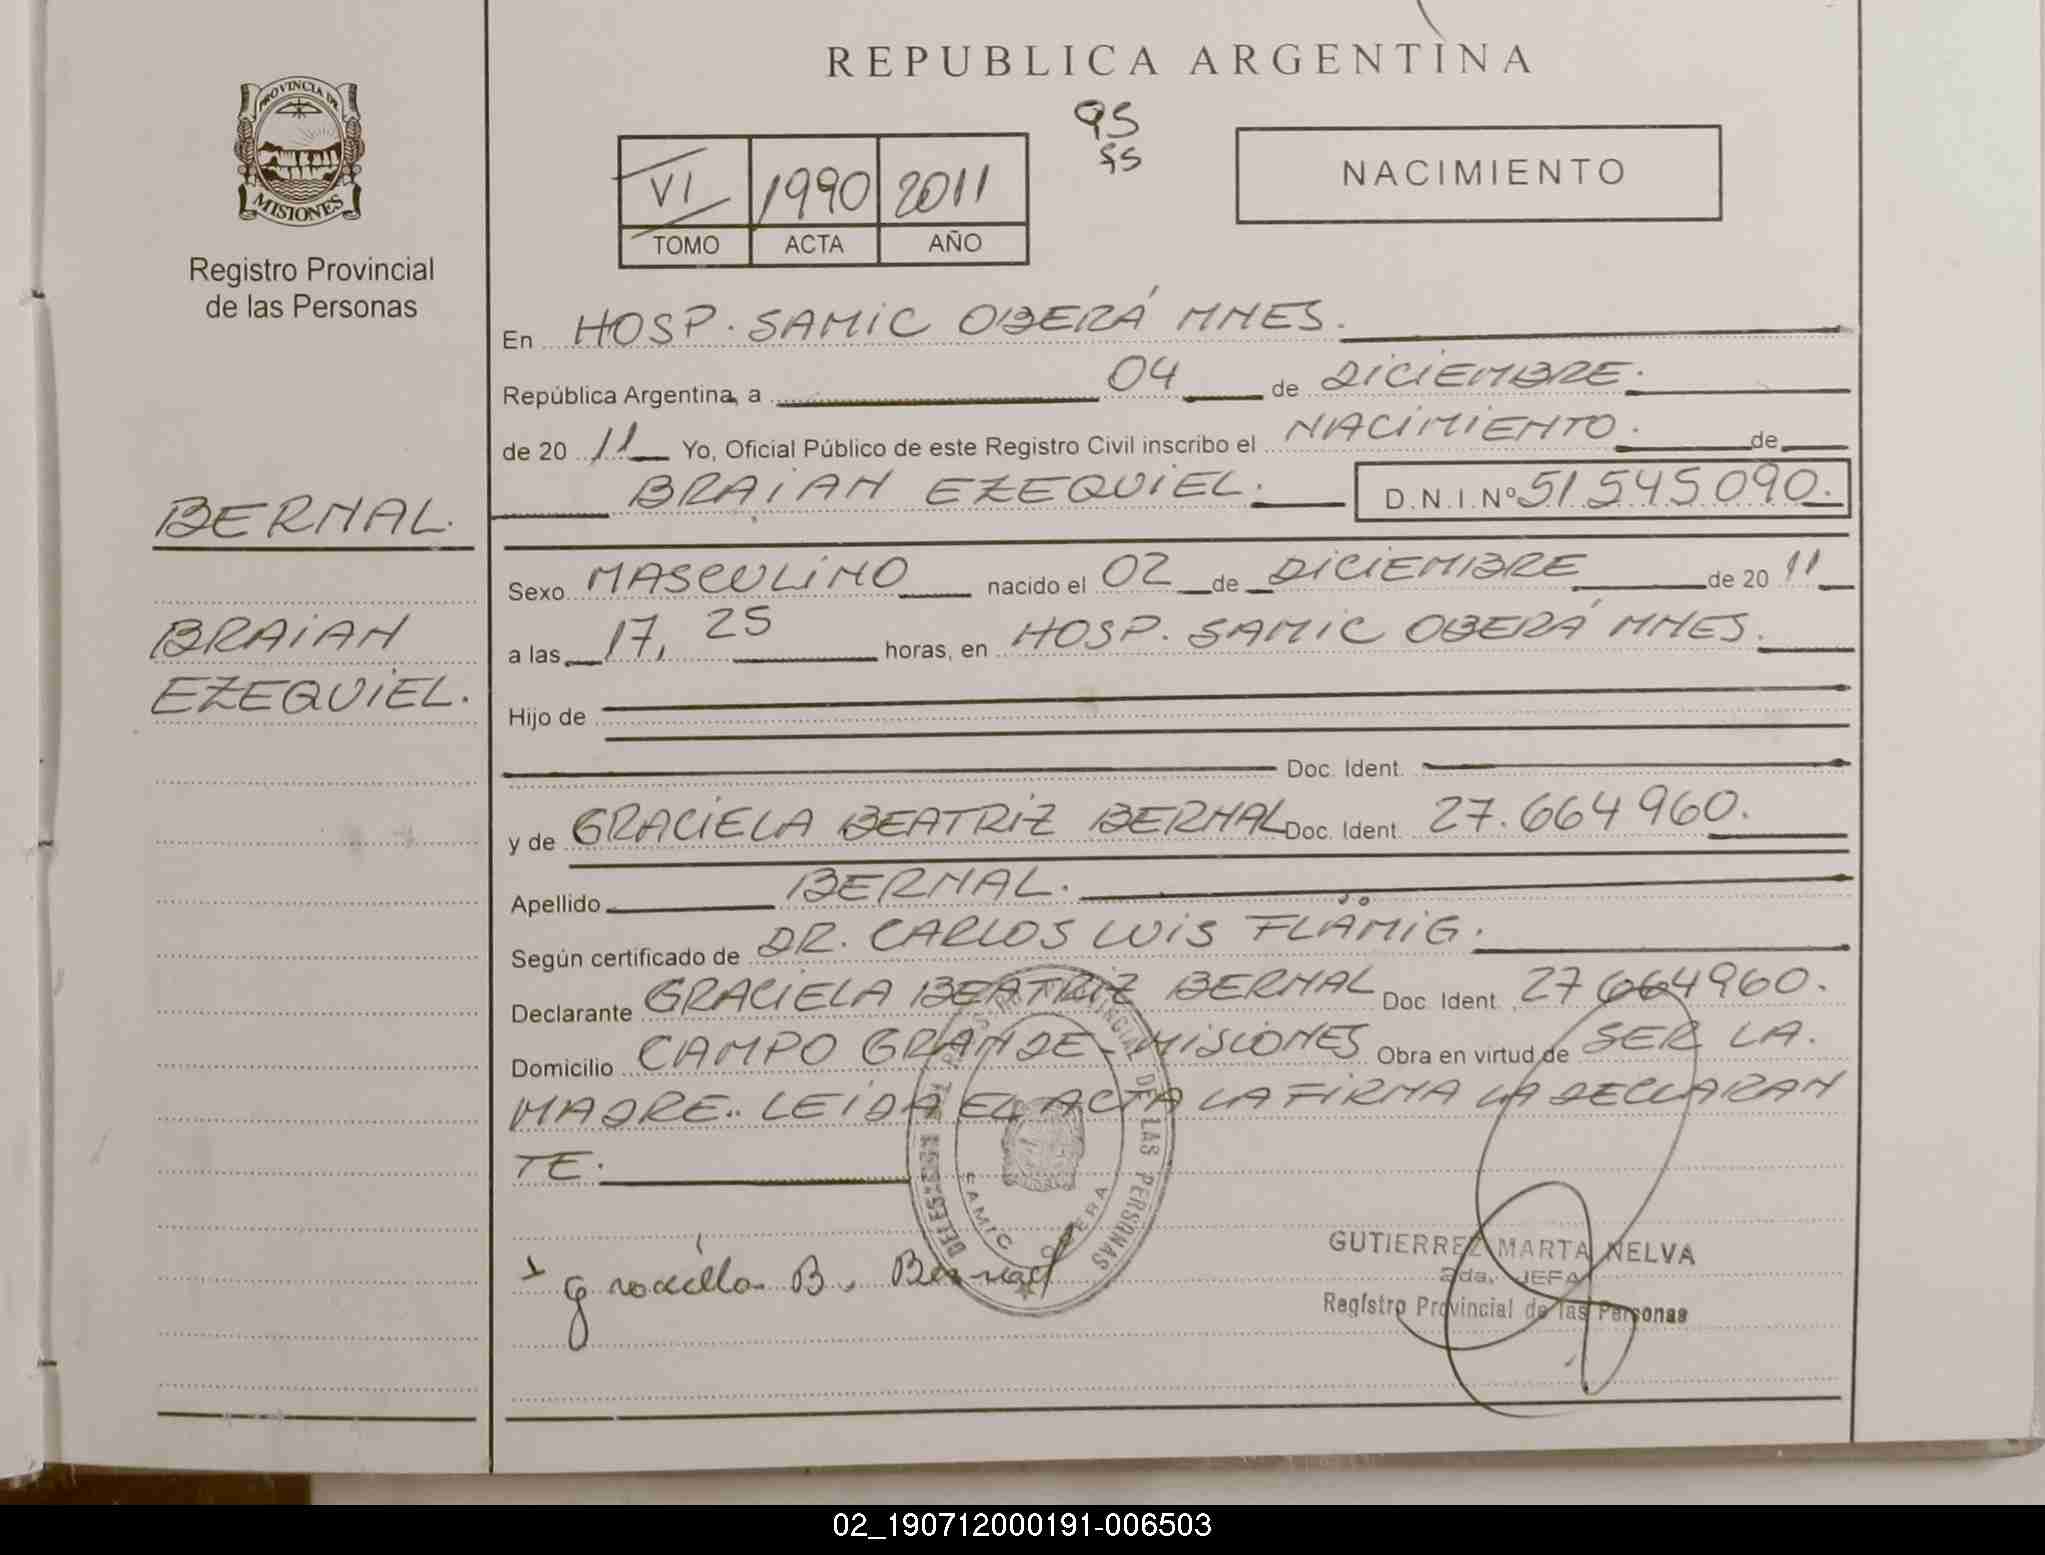 REPUBLICA ARGENTINA
PROVINCIA DE
MISIONES
Registro Provincial
de las Personas
95
VI 1990 2011
TOMO ACTA AÑO
NACIMIENTO
BERNAL.
BRAIAN
EZEQUIEL.
En HOSP. SAMIC OBERÁ MNES.
República Argentina, a 04 de DICIEMBRE.
de 20 11 Yo, Oficial Público de este Registro Civil inscribo el NACIMIENTO. de
BRAIAN EZEQUIEL. D.N.I.Nº 51.545.090.
Sexo MASCULINO nacido el 02 de DICIEMBRE de 20 11
a las 17, 25 horas, en HOSP. SAMIC OBERÁ MNES.
Hijo de
Doc. Ident.
y de GRACIELA BEATRIZ BERNAL Doc. Ident. 27.664960.
Apellido BERNAL.
Según certificado de DR. CARLOS LUIS FLÄMIG.
Declarante GRACIELA BEATRIZ BERNAL Doc. Ident. 27664960.
Domicilio CAMPO GRANDE - MISIONES Obra en virtud de SER LA.
MADRE.. LEIDA EL ACTA LA FIRMA LA DECLARAN
TE.
PROVINCIAL DE LAS PERSONAS
SAMIC OBERA
B. Bernal
GUTIERREZ MARTA NELVA
2da. JEFA
Registro Provincial de las Personas
02_190712000191-006503